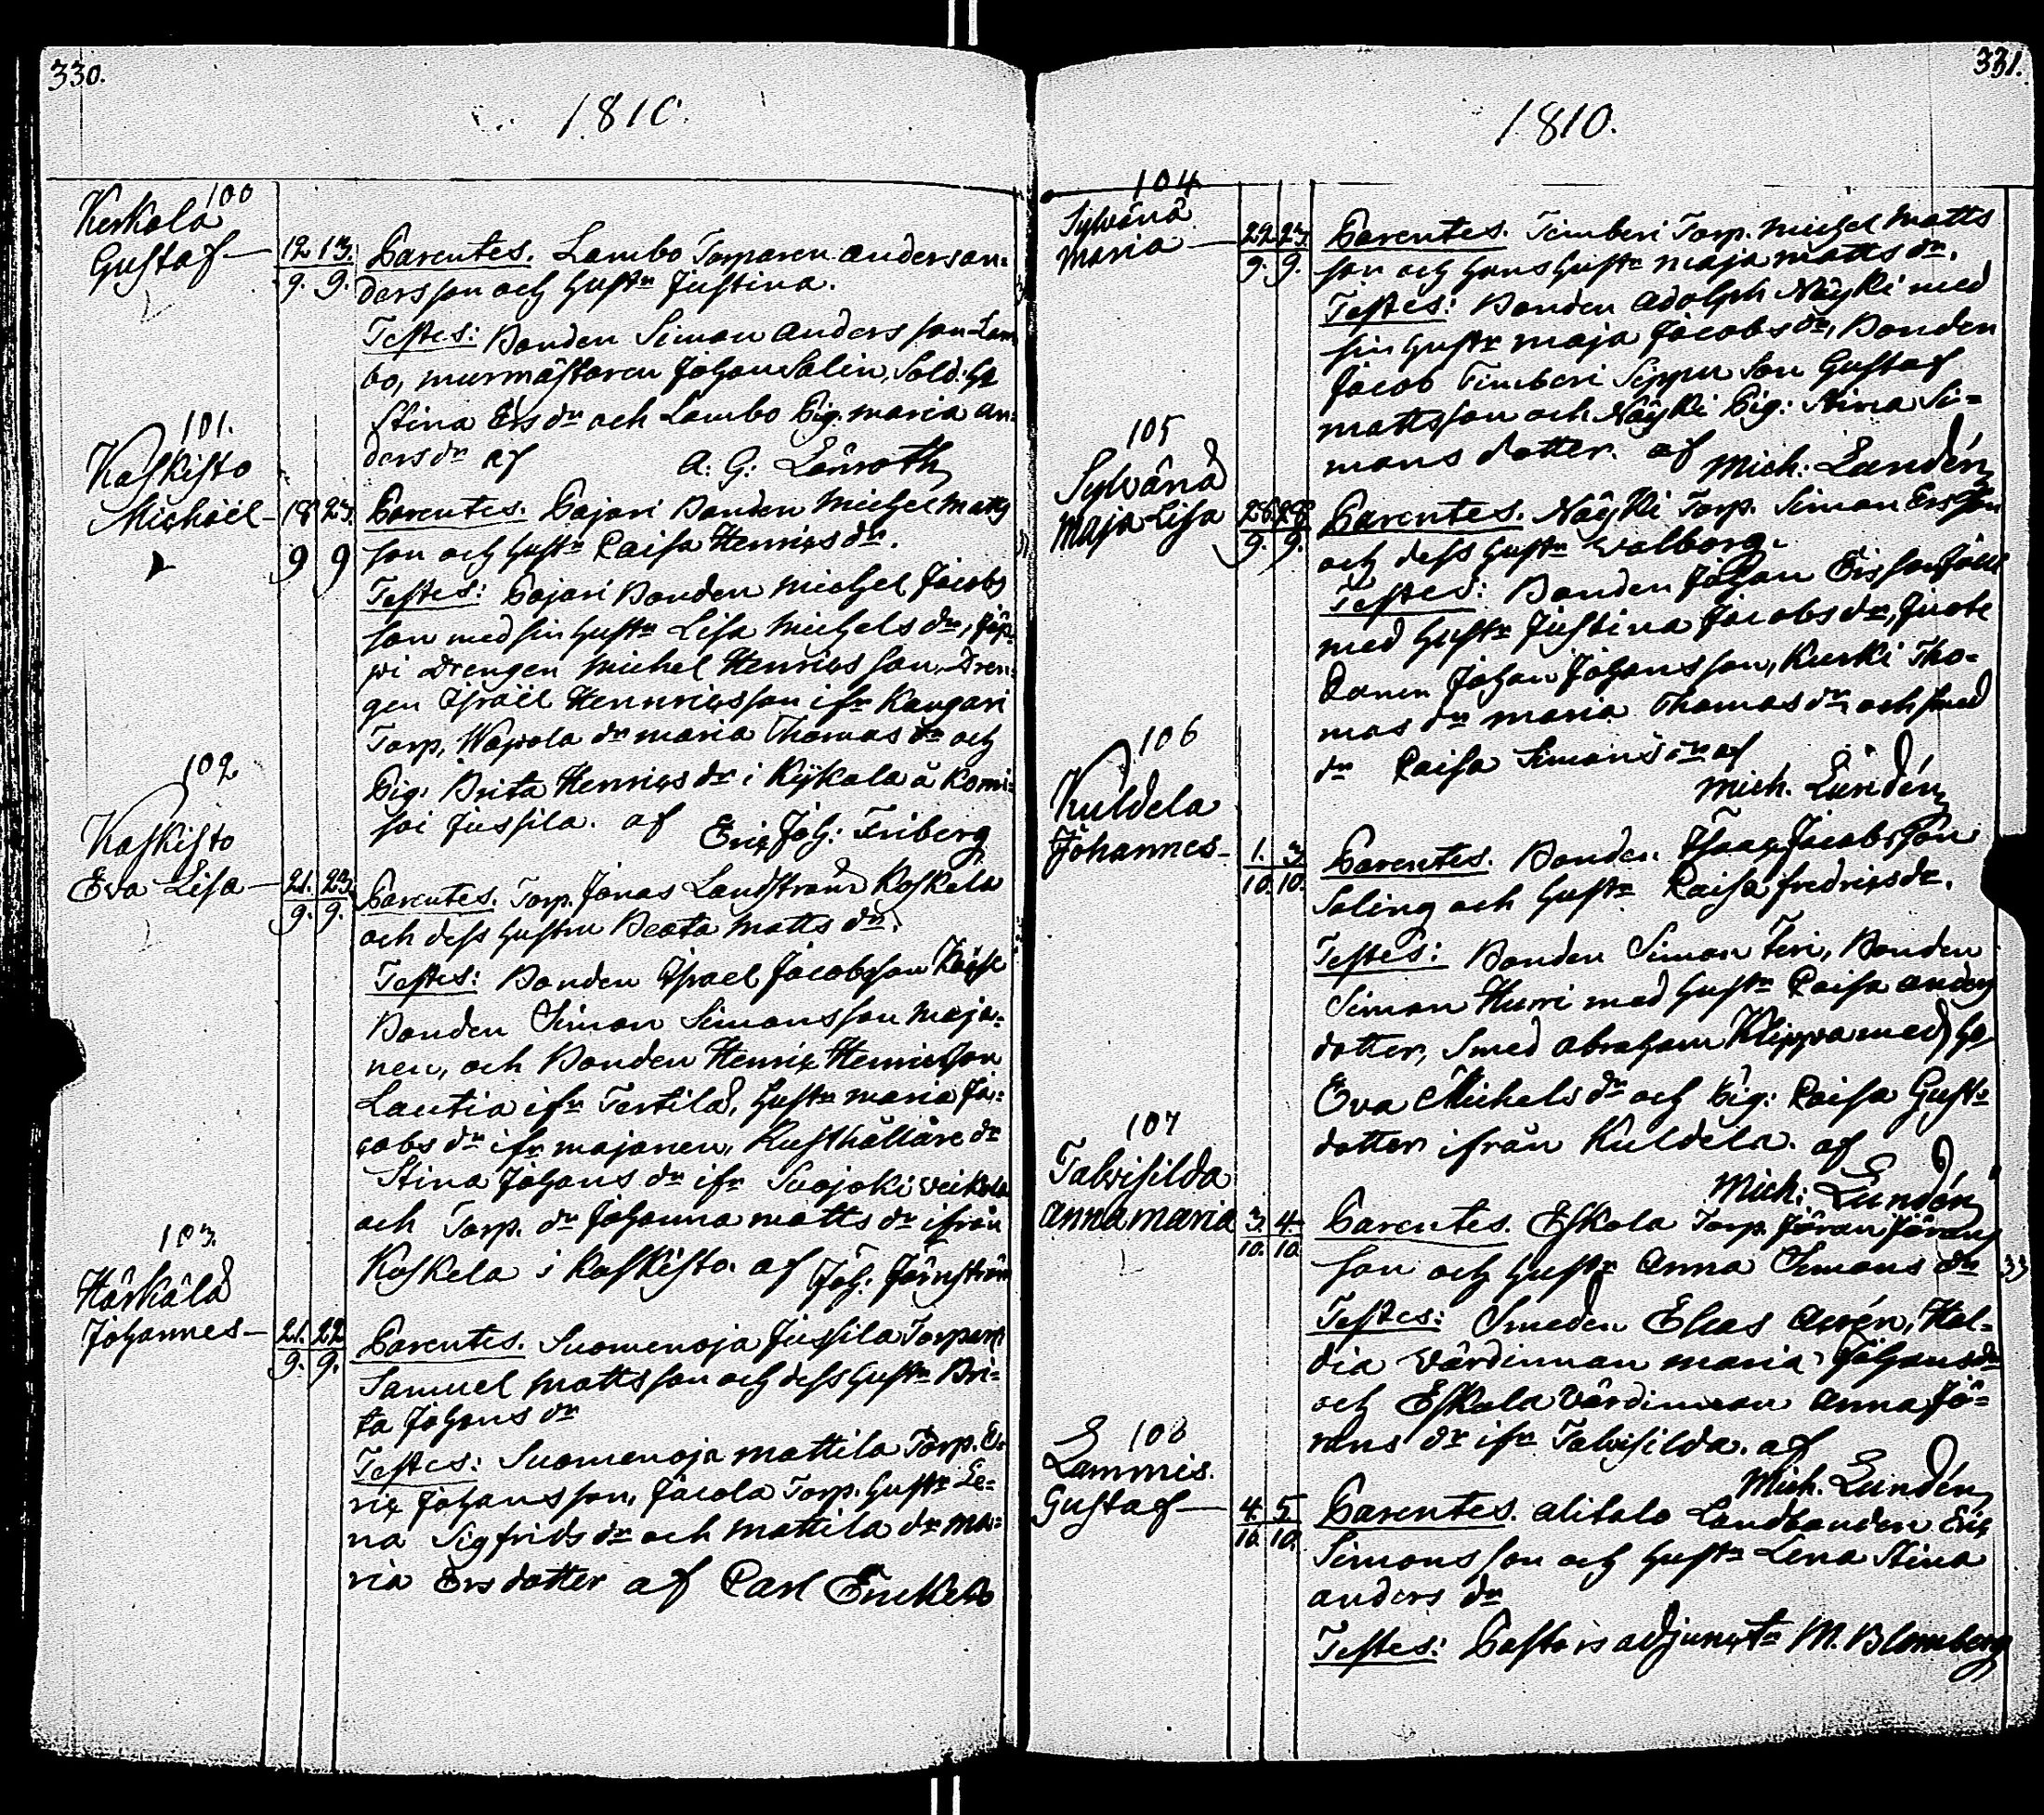 330.
1810.
100
Kerkola
Gustaf — 12 13.
9. 9.
Parentes. Lambo Torparen Anders An=
dersson och hustr Justina.
Testes: Bonden Simon Andersson Lam
bo, murmästaren Johan Salin, Sold: h
Stina Ersdr och Lambo Pig. Maria An=
dersdr af A: G: Lönroth
101.
Koskisto
Michäel — 18 23.
9 9
Parentes. Pajari Bonden Michel Matts
son och hustr Caisa Henricsdr.
Testes: Pajari Bonden Michel Jacobs
son med sin hustr Lisa Michelsdr,
Drengen Michel Henricsson, Dren=
gen Israël Hennricsson ifr Kangari
Torp, Wäpola dr Maria Thomasdr och
Pig: Brita Henricsdr i Kÿkala å
Jussila. af Eric Joh: Friberg
102
Koskisto
Eva Lisa — 21. 23
9. 9.
Parentes. Torp. Jonas Landström Koskela
och dess hustru Beata Mattsdr.
Testes: Bonden Israel Jacobsson
Bonden Simon Simonsson Maja=
nen, och Bonden Henric Henricsson
Lautia ifr Tertilä, hustr Maria Ja=
cobsdr ifr Majanen, Rusthållare dr
Stina Johansdr ifr Suojoki
och Torp. dr Johanna Mattsdr ifrån
Koskela i Koskisto. af Joh. Järnström
103.
Härkälä
Johannes — 21. 22
9. 9.
Parentes. Suomenoja Jussila Torparn
Samuel Mattsson och dess hustr Bri=
ta Johansdr
Testes: Suomenoja Mattila Torp. E=
ric Johansson, Jacola Torp. hustr Le=
na Sigfridsdr och Mattila dr Ma=
ria Ersdotter af Carl Enckell
331.
1810.
104
Sylvänä
Maria — 22 23
9. 9.
Parentes. Timberi Torp. Michel Matts
son och hans hustr Maja Mattsdr.
Testes: Bonden Adolph Näÿki med
sin hustr Maja Jacobsdr, Bonden
Jacob Timberi Seppu Son Gustaf
Mattsson och Näÿki Pig: Stina Si=
mons dotter. af Mich: Lundén
105
Sylvänä
Maja Lisa 26. 28.
9. 9.
Parentes. Näÿki Torp. Simon Ersson
och dess hustr Walborg.
Testes: Bonden Johan Ersson
med hustr Justina Jacobsdr,
Johan Johansson, Kurki Tho=
mas dr Maria Thomasdr och smed
dr Caisa Simonsdr af
Mich. Lundén
106
Kuldela
Johannes — 1. 3
10. 10.
Parentes. Bonden Isaac Jacobsson
Soling och hustr Caisa Fredricsdr.
Testes: Bonden Simon Teri, Bonden
Simon Hurri med hustr Caisa Anders
dotter, Smed Abraham Klippa med h
Eva Michelsdr och Pig: Caisa Gust
dotter ifrån Kuldela. af
Mich: Lundén
107
Talvisilda
Anna Maria 3. 4.
10. 10.
Parentes. Eskola Torp. Jöran Jörans
son och hustr Anna Simonsdr
Testes: Smeden Elias Avén, Hal=
dia Värdinnan Maria Johansdr
och Eskola Värdinnan Anna Jö=
ransdr ifr Talvisilda. af
Mich. Lundén
108
Lammis.
Gustaf — 4. 5.
10. 10.
Parentes. Alitalo Landbonden Eric
Simonsson och hustr Lena Stina
Anders dr
Testes: Pastors adjunct M. Blomberg
33